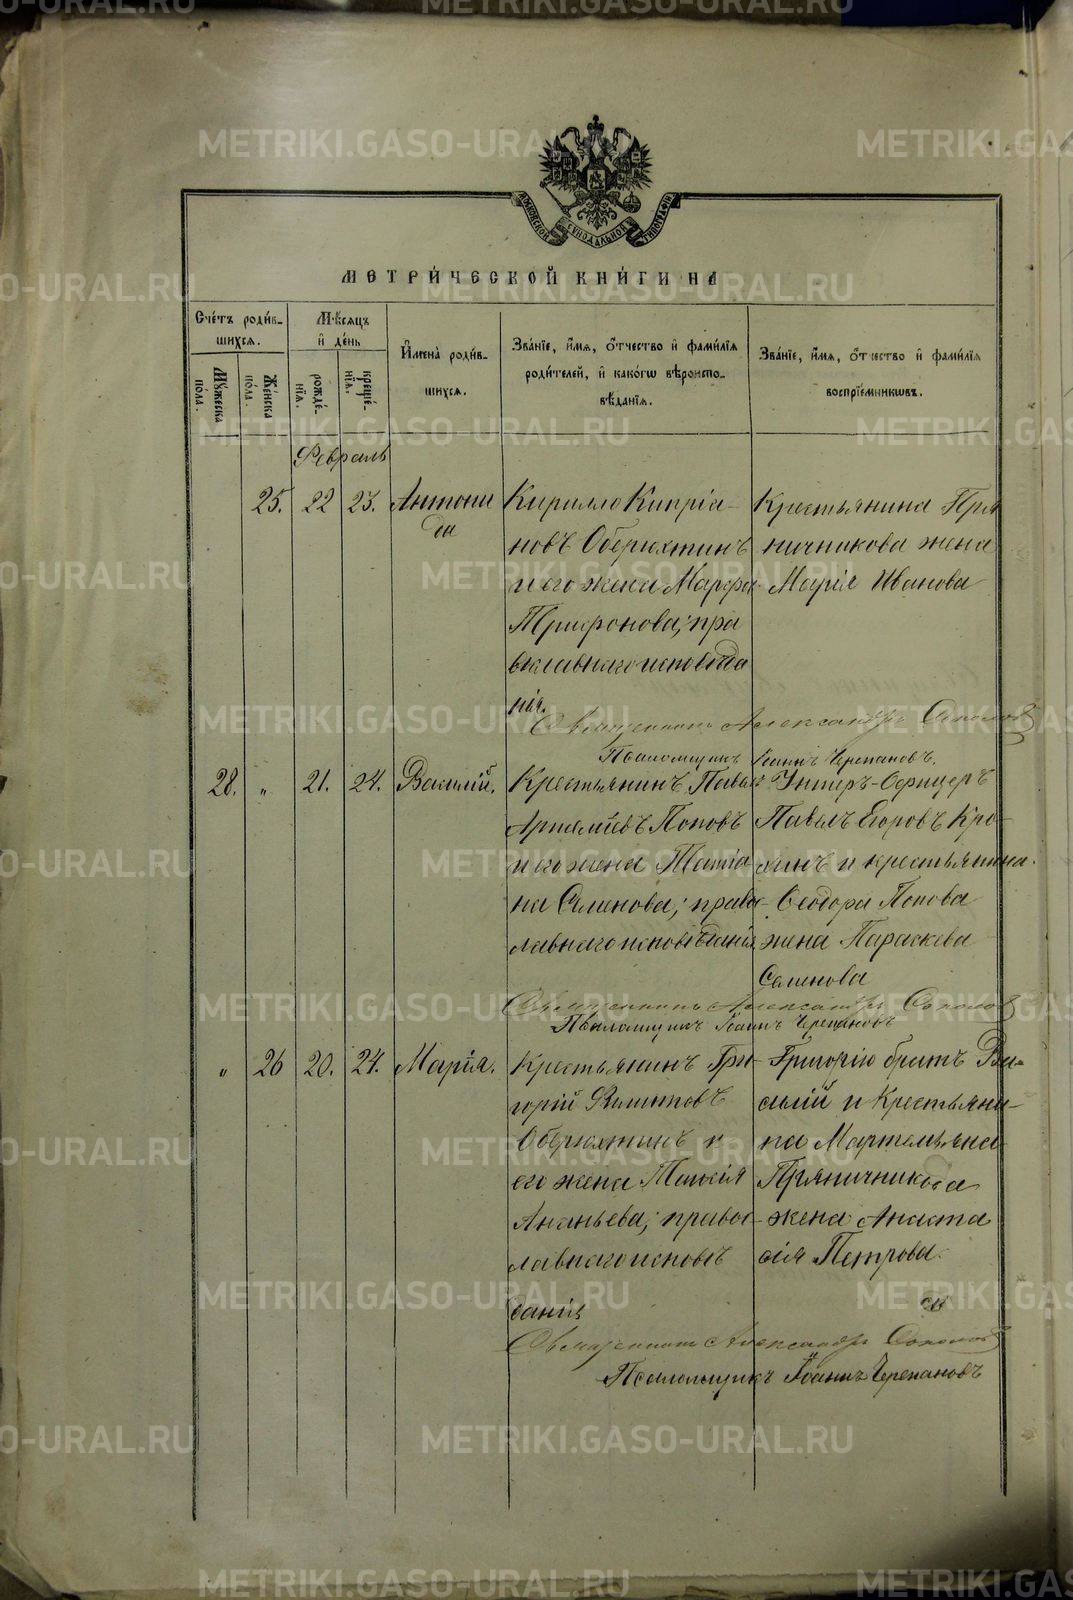 METRIKI.GASO-URAL.RU
МОСКОВСКОЙ СУНОДАЛЬНОЙ ТИПОГРАФІИ
МЕТРИ́ЧЕСКОЙ КНИ́ГИ НА
Сче́тъ роди́в-
шихсѧ.
Мѣ́сѧцъ
и҆ де́нь
И҆мена̀ роди́в-
шихсѧ.
Зва́нїе, и҆́мѧ, ѻ҆́тчество и҆ фами́лїѧ
роди́телей, и҆ како́гѡ вѣроиспо-
вѣ́данїѧ.
Зва́нїе, и҆́мѧ, ѻ҆́тчество и҆ фами́лїѧ
воспрїе́мникѡвъ.
Мꙋ́жеска по́ла.
Же́нска по́ла.
рожде́-
нїѧ.
креще́-
нїѧ.
Февраль
25. 22 23. Антони
да
Кирилло Кипріа-
новъ Оберюхтинъ
и его жена Марфа
Трифонова; пра
вославнаго исповѣда
нія.
Крестьянина Пря
ничникова жена
Марія Иванова
Священникъ Александръ Соколовъ
Псаломщикъ Іоаннъ Черепановъ.
28. „ 21. 24. Василій.
Крестьянинъ Павелъ
Артеміевъ Поповъ
и его жена Татіа
на Семенова; право
славнаго исповѣданія
Унтеръ-Офицеръ
Павелъ Егоровъ Кро-
хинъ и крестьянина
Ѳеодора Попова
жена Параскева
Семенова
Священникъ Александръ Соколовъ
Псаломщикъ Іоаннъ Черепановъ
„ 26 20. 24. Марія.
Крестьянинъ Гри-
горій Филиповъ
Оберюхтинъ и
его жена Таисія
Ананьева; правос-
лавнаго исповѣ
данія
Григорію братъ Ва-
силій и Крестьяни-
на Мартемьяна
Пряничникова
жена Анаста
сія Петрова.
Священникъ Александръ Соколовъ
Псаломщикъ Іоаннъ Черепановъ